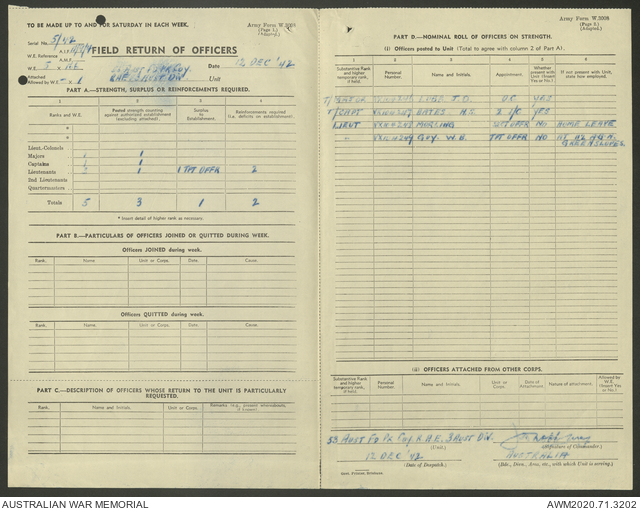 TO BE MADE UP TO AND FOR SATURDAY IN EACH WEEK.
Army Form W.3008
(Page 1.)
(Adapted.)
Serial No. 5/42
W.E. Reference
A.I.F.
A.M.F.
FIELD RETURN OF OFFICERS
W.E. 5
Attached
Allowed by W.E.
RAE 3 AUST DIV. Unit
Date 12 DEC '42
PART A.—STRENGTH, SURPLUS OR REINFORCEMENTS REQUIRED.
1 2 3 4
Ranks and W.E.
Posted strength counting against authorized establishment (excluding attached).
Surplus to Establishment.
Reinforcements required (i.e. deficits on establishment).
Lieut.-Colonels
Majors 1 1
Captains 1 1
Lieutenants 3 1 1 TPT OFFR 2
2nd Lieutenants
Quartermasters
Totals 5 3 1 2
* Insert detail of higher rank as necessary.
PART B.—PARTICULARS OF OFFICERS JOINED OR QUITTED DURING WEEK.
Officers JOINED during week.
Rank. Name Unit or Corps. Date. Cause.
Officers QUITTED during week.
Rank. Name Unit or Corps. Date. Cause.
PART C.—DESCRIPTION OF OFFICERS WHOSE RETURN TO THE UNIT IS PARTICULARLY REQUESTED.
Rank. Name and Initials. Unit or Corps.
Army Form W.3008
(Page 2.)
(Adapted).
PART D.—NOMINAL ROLL OF OFFICERS ON STRENGTH.
(i) Officers posted to Unit (Total to agree with column 2 of Part A).
1 2 3 4 5 6
Substantive Rank and higher temporary rank, if held.
Personal Number.
Name and Initials.
Appointment.
Whether present with Unit (Insert Yes or No.)
If not present with Unit, state how employed.
T/MAJOR O.C. YES
T/CAPT BAYES H.S 2 I/C YES
LIEUT NO HOME LEAVE
" GUY W.B. TPT OFFR NO
GREENSLOPES
(ii) OFFICERS ATTACHED FROM OTHER CORPS.
Substantive Rank and higher temporary rank, if held.
Personal Number.
Name and Initials.
Unit or Corps.
Date of Attachment.
Nature of attachment.
Allowed by W.E. (Insert Yes or No.)
AUST FD PK COY. R.A.E. 3 AUST DIV.
(Unit.)
(Signature of Commander.)
12 DEC '42
(Date of Despatch.)
AUSTRALIA
(Bde., Divn., Area, etc., with which Unit is serving.)
AUSTRALIAN WAR MEMORIAL
AWM2020.71.3202